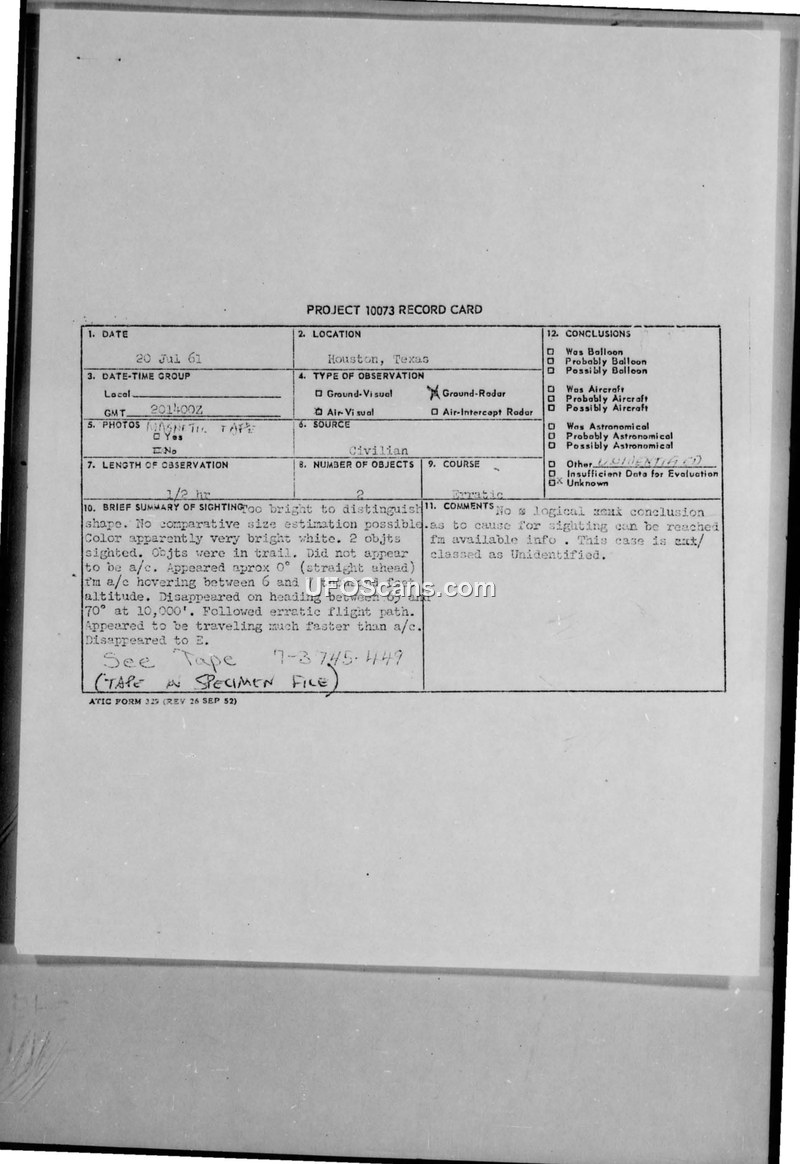 PROJECT 10073 RECORD CARD
1. DATE
20 Jul 61
2. LOCATION
Houston, Texas
3. DATE-TIME GROUP
Local
GMT 201400Z
4. TYPE OF OBSERVATION
Ground-Visual
Ground-Radar
Air-Visual
Air-Intercept Radar
5. PHOTOS MAGNETIC TAPE
Yes
No
6. SOURCE
Civilian
7. LENGTH OF OBSERVATION
1/2 hr
8. NUMBER OF OBJECTS
2
9. COURSE
Erratic
10. BRIEF SUMMARY OF SIGHTING Too bright to distinguish
shape. No comparative size estimation possible.
Color apparently very bright white. 2 objts
sighted. Objts were in trail. Did not appear
to be a/c. Appeared aprox 0° (straight ahead)
fm a/c hovering between 6 and
altitude. Disappeared on heading between 65 and
70° at 10,000'. Followed erratic flight path.
Appeared to be traveling much faster than a/c.
Disappeared to E.
See Tape 7-3745-449
(TAPE IN SPECIMEN FILE)
11. COMMENTS No logical conclusion
as to cause for sighting can be reached
fm available info . This case is
classed as Unidentified.
12. CONCLUSIONS
Was Balloon
Probably Balloon
Possibly Balloon
Was Aircraft
Probably Aircraft
Possibly Aircraft
Was Astronomical
Probably Astronomical
Possibly Astronomical
Other UNIDENTIFIED
Insufficient Data for Evaluation
Unknown
ATIC FORM 329 (REV 26 SEP 52)
UFOScans.com